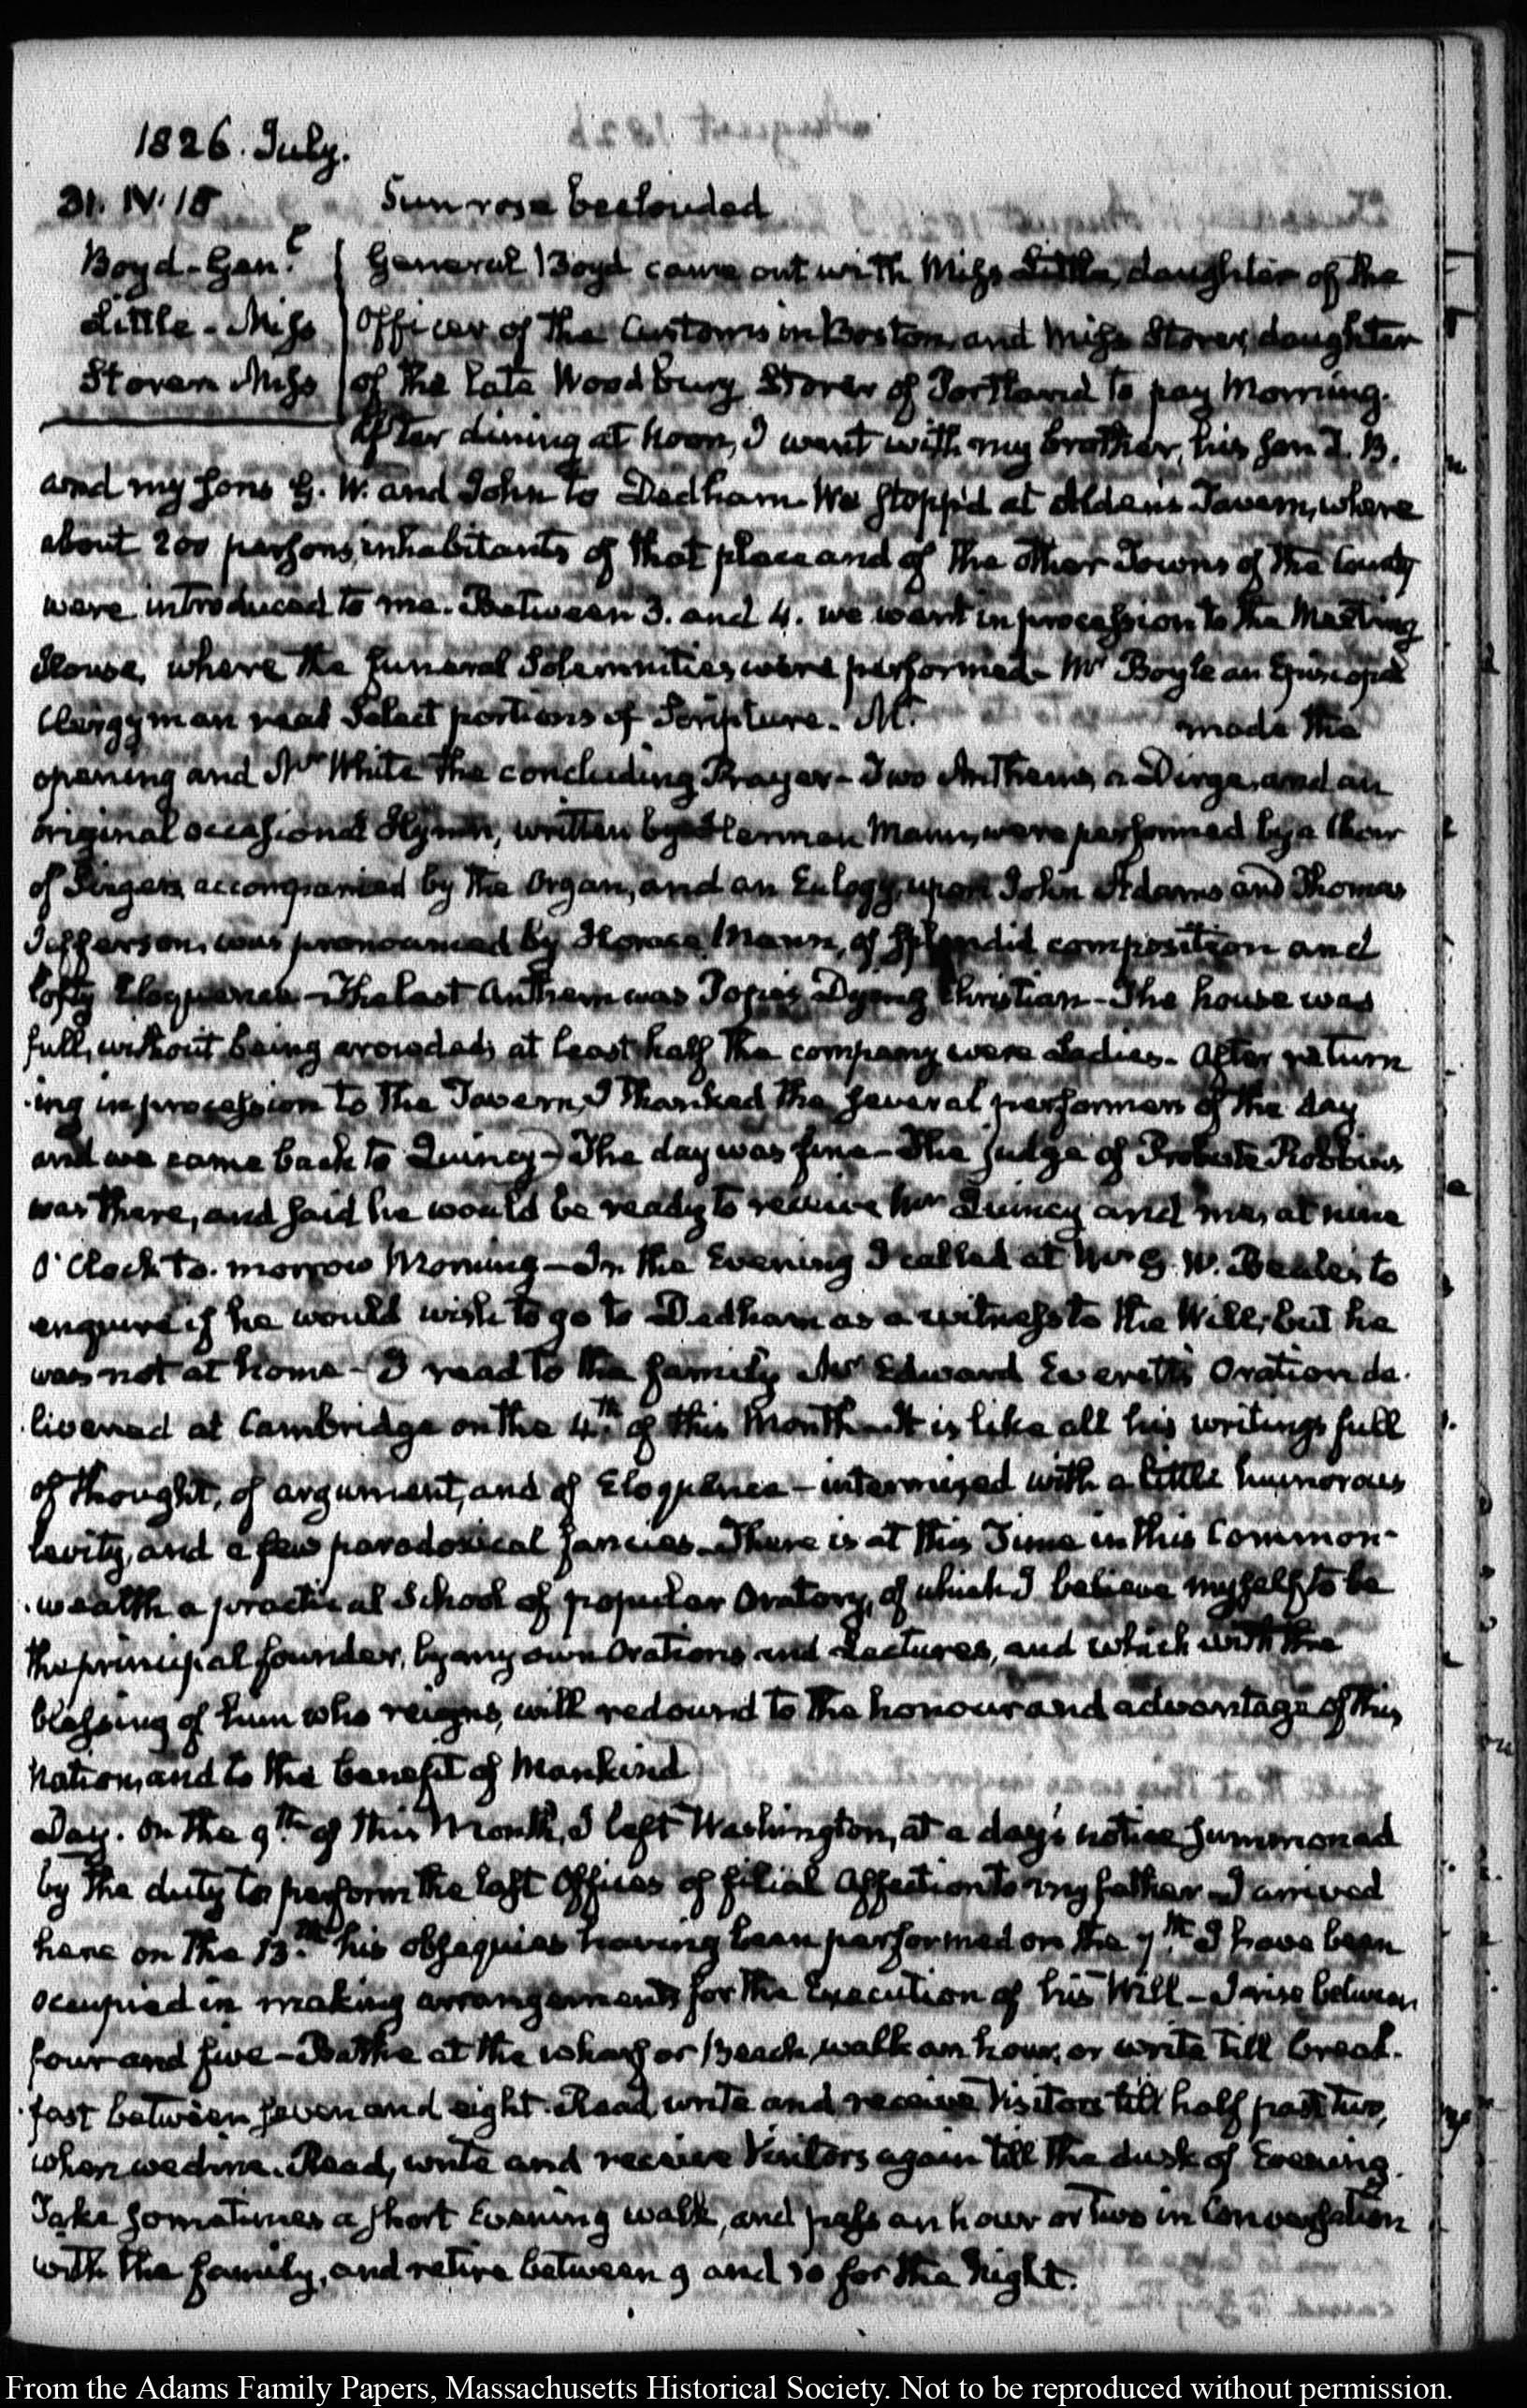 1826. July.
31. IV. 15 Sun rose beclouded
Boyd - Gen.l General Boyd came out with Miss Little, daughter of the
Little - Miss Officer of the Customs in Boston, and Miss Storer, daughter
Storer Miss of the late Woodbury Storer of Portland to pay Morning.
After dining at Noon, I went with my brother, his son T. B.
and my sons G. W. and John to Dedham. We stopp'd at Alden's Tavern, where
about 200 persons, inhabitants of that place and of the other Towns of the County
were introduced to me. Between 3. and 4. we went in procession to the Meeting
House, where the funeral Solemnities were performed - Mr Boyle an Episcopal
Clergyman read Select portions of Scripture. Mr. made the
opening and Mr White the concluding Prayer - Two Anthems, a Dirge, and an
original occasional Hymn, written by Herman Mann, were performed by a Choir
of Singers, accompanied by the Organ, and an Eulogy, upon John Adams and Thomas
Jefferson, was pronounced by Horace Mann, of splendid composition and
lofty Eloquence - The last Anthem was Pope's Dying Christian - The house was
full, without being crowded; at least half the company were Ladies - After return
-ing in procession to the Tavern, I thanked the several performers of the day
and we came back to Quincy - The day was fine - The Judge of Probate Robbins
was there, and said he would be ready to receive Mr Quincy and me, at nine
O'Clock to-morrow Morning - In the Evening I called at Mr G. W. Beale's to
enquire if he would wish to go to Dedham as a witness to the Will; but he
was not at home - I read to the family Mr Edward Everett's Oration de-
livered at Cambridge on the 4.th of this Month - It is like all his writings full
of thought, of argument, and of Eloquence - intermixed with a little humorous
levity, and a few paradoxical fancies - There is at this Time in this Common-
-wealth a practical School of popular Oratory, of which I believe myself to be
the principal founder, by my own Orations and Lectures, and which with the
blessing of him who reigns, will redound to the honour and advantage of this
Nation, and to the benefit of Mankind
Day. On the 9.th of this Month, I left Washington, at a day's notice summoned
by the duty to perform the last Offices of filial Affection to my father - I arrived
here on the 13.th his obsequies having been performed on the 7.th I have been
occupied in making arrangements for the Execution of his Will - I rise between
four and five - Bathe at the wharf or Beach, walk an hour, or write till break-
-fast between seven and eight. Read, write and receive Visitors till half past two,
when we dine. Read, write and receive Visitors again till the dusk of Evening.
Take sometimes a short Evening walk, and pass an hour or two in Conversation
with the family, and retire between 9 and 10 for the Night.
From the Adams Family Papers, Massachusetts Historical Society. Not to be reproduced without permission.